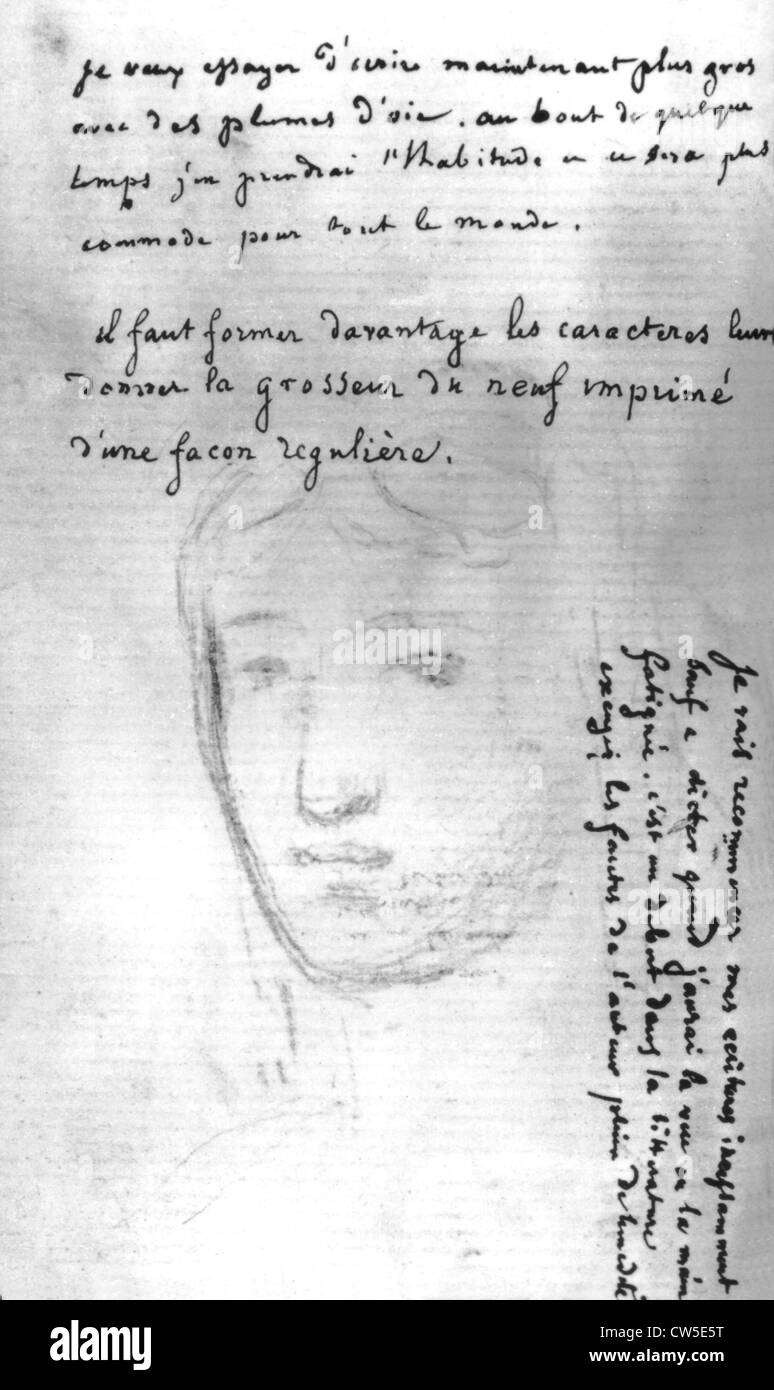 Je veux essayer d'ecrire maintenant plus gros
avec des plumes d'oie. au bout de quelque
temps j'en prendrai l'habitude et ce sera plus
commode pour tout le monde.
il faut former davantage les caracteres leur
donner la grosseur du neuf imprimé
d'une facon regulière.
Je vais recommencer mes ecritures incessamment
sauf a dicter quand j'aurai la vue ou la main
fatiguée. c'est un debut dans la litterature
excusez les fautes de l'auteur plein de timidité
a
a
alamy
a
a
alamy
a
alamy
Image ID: CW5E5T
www.alamy.com